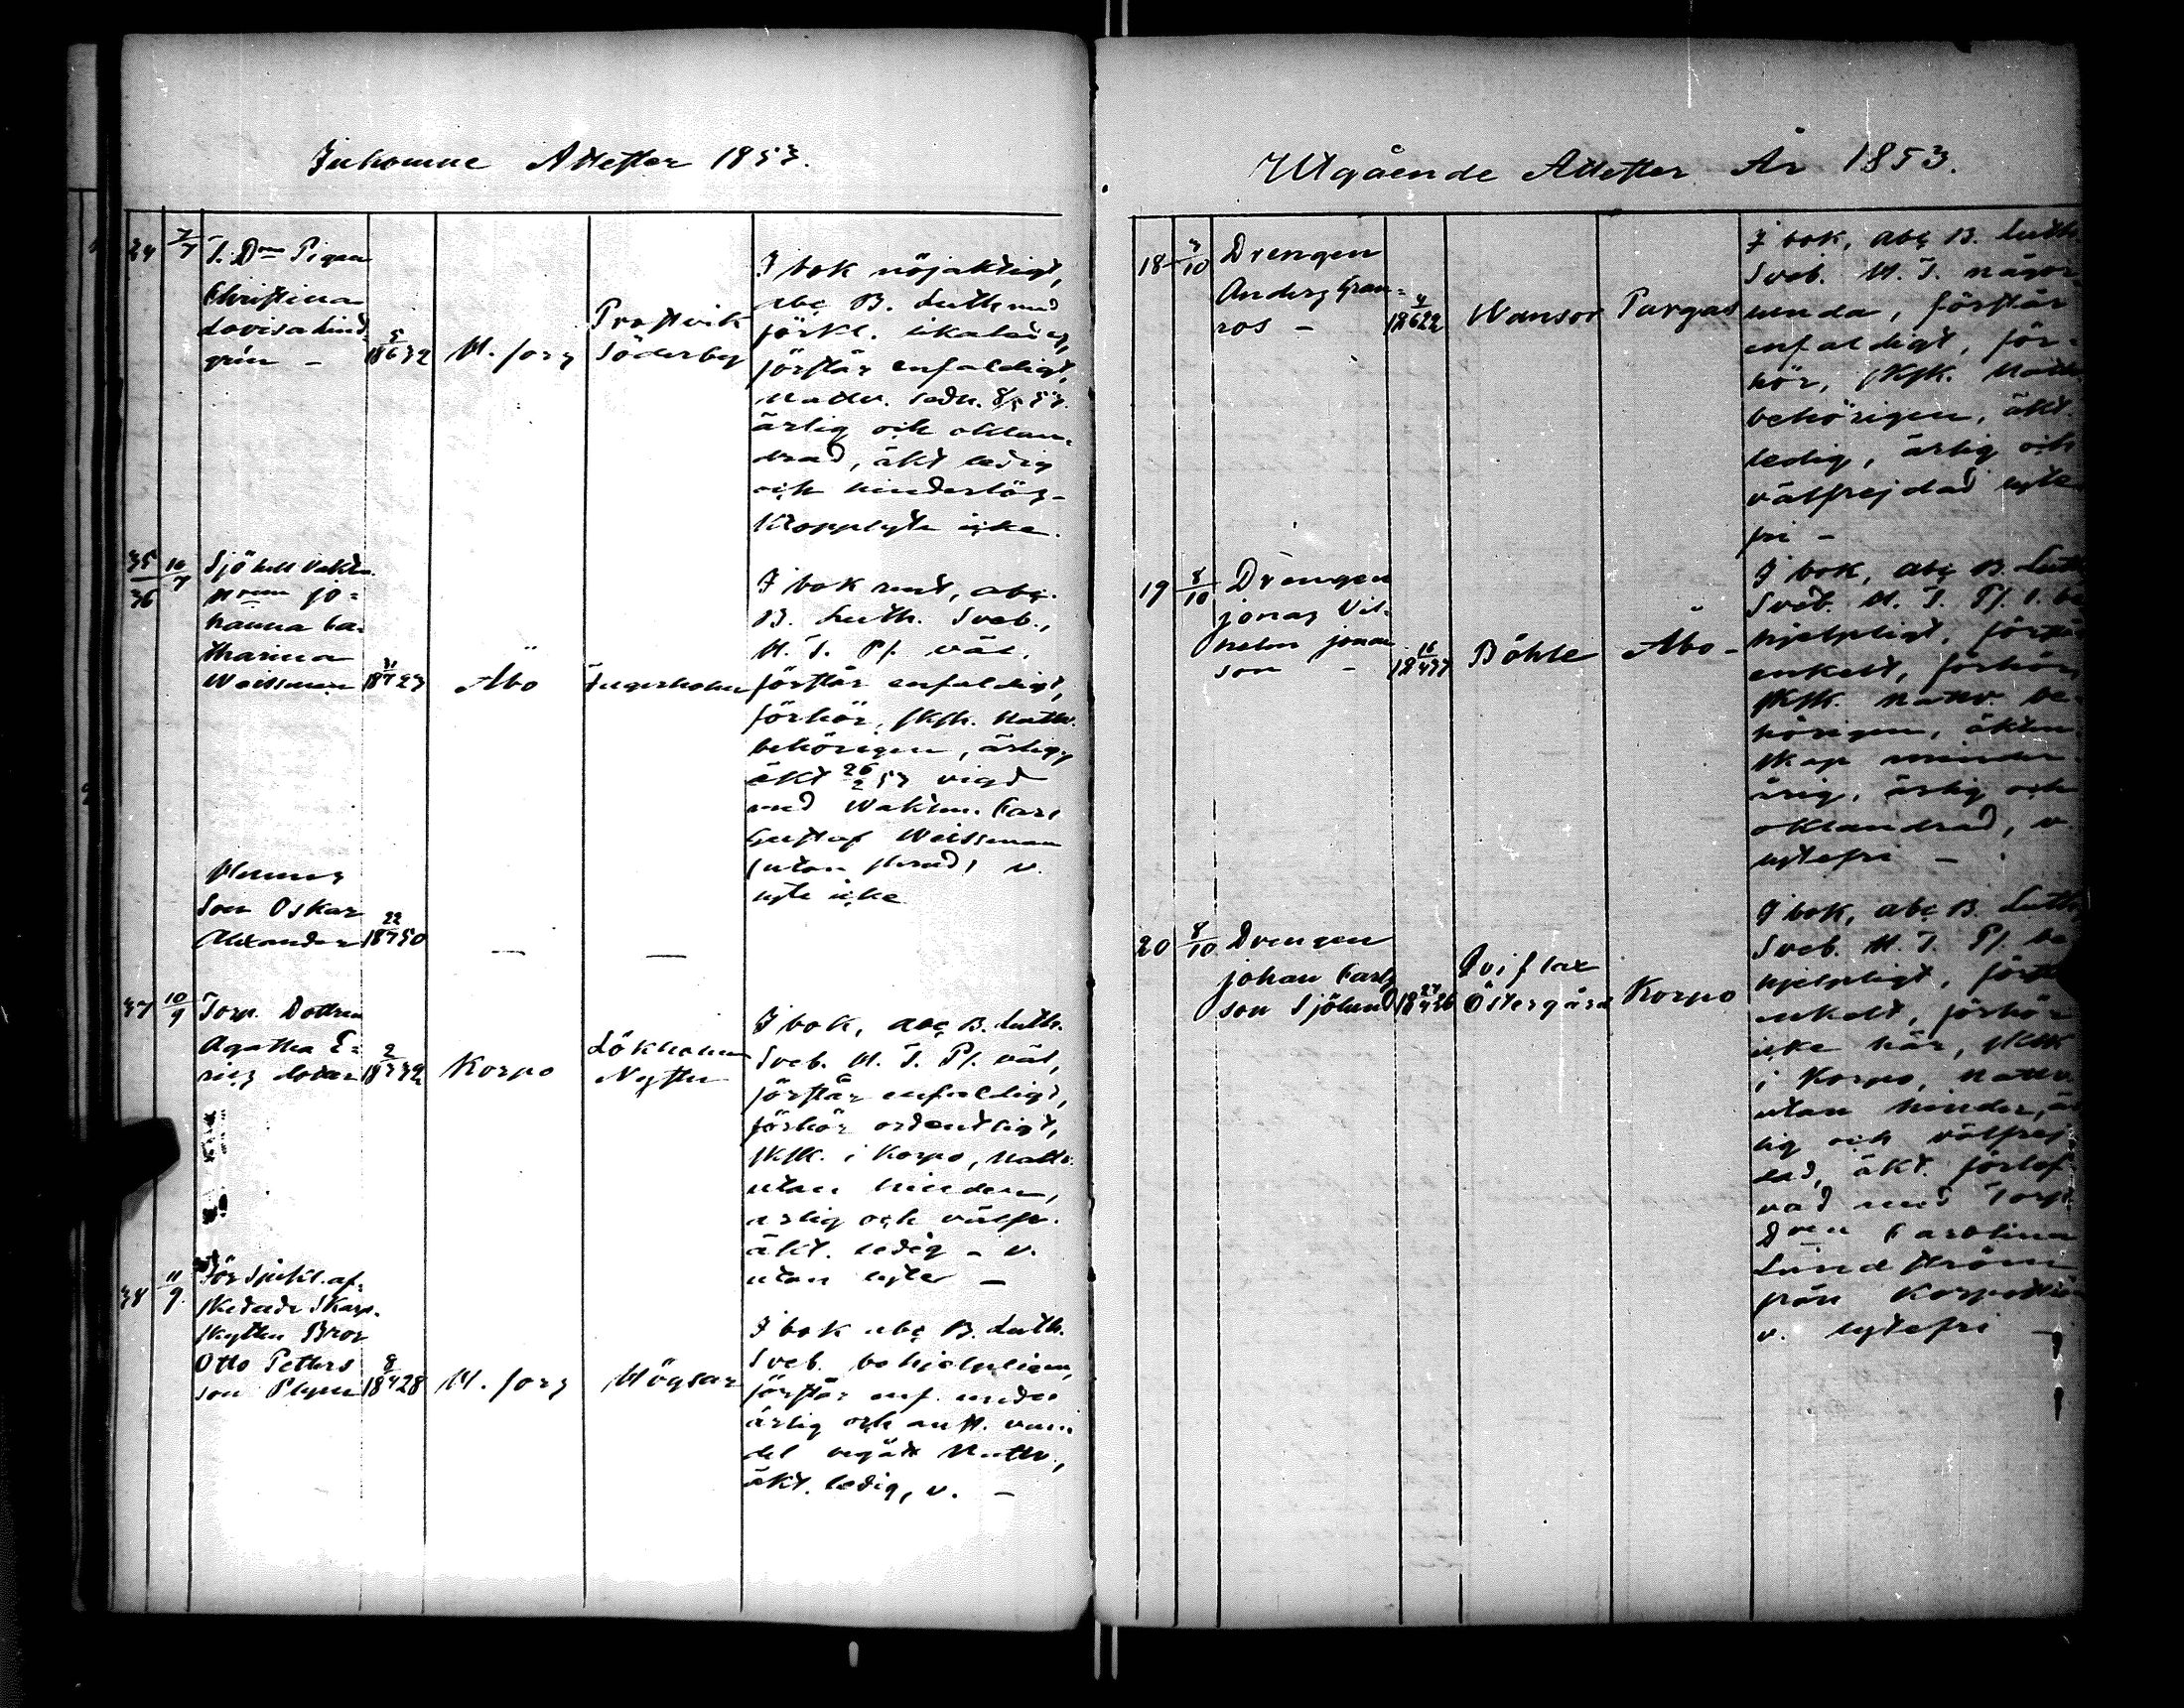 Inkomne Attester 1853.
34 7/7 T. Dren Pigan
Christina
Lovisa Lind
grén – 18 5/6 32 M. forz
Prostvik
Söderby
I bok nöjaktigt,
abc B. Luth med
förkl.
förstår enfaldigt,
Nattv. sedn. 8/5 53.
ärlig och oklan-
drad, äkt ledig
och hinderlös –
Kopplyte icke.
35 16/7 Sjötull vakt.
36
hanna Ca-
tharina
Weissman 18 21/7 23 Åbo
I bok rent, abc.
B. Luth. Sveb.,
H. T. Ps. väl.
förstår enfaldigt,
förhör, skfk. Nattv.
behörigen, ärlig,
äkt 26/2 53 vigd
med Waktm. Carl
Gustaf Weissman
v.
lyte icke
Son Oskar
Alexander 18 22/7 50 — —
37 10/9 Torp. Dottren
Agatha E-
rics dotter 18 2/7 32 Korpo
Lökholm
I bok, abc B. Luth.
Sveb. H. T. Ps. väl,
förstår enfaldigt,
förhör ordentligt,
skfk. i Korpo, Nattv.
utan hinder,
ärlig och välfr.
äkt. ledig – v.
utan lyte —
38 11/9 För Sjukl. af-
skedade Skarp-
skytten Bror
Otto Petters
son Plym 18 8/4 28 M. forz Högsar
I bok abc B. Luth.
Sveb. behjelpligen,
förstår enf. under
ärlig och anst. van-
del begått Nattv.,
äkt. ledig, v. –
Utgående Attester År 1853.
18 7/10 Drengen
Anders Gran-
ros – 18 4/6 22 Wansor Pargas
I bok, abc B. Luth.
Sveb. H. T. någor-
lunda, förstår
enfaldigt, för-
hör, skfk. Nattv.
behörigen, äkt.
ledig, ärlig och
välfrejdad lyte
fri –
19 8/10 Drengen
jonas Vil-
helm jonas
son – 18 16/4 37 Böhle Åbo –
I bok, abc B. Luth
Sveb. H. T. Ps.
hjelpligt, förstår
enkelt, förhör,
skfk. nattv. be-
hörigen, äkten-
skap minder-
årig, ärlig och
oklandrad, v.
lytefri –
20 8/10 Drengen
johan Carls
son Sjölund 18 24/4 26
Qviflax
Östergård Korpo
I bok, abc B. Luth,
Sveb. H. T. Ps. be
hjelpligt, förstår
enkelt, förhör
icke här, skfk
i Korpo, Nattv
utan hinder, är
lig och välfrej
dad, äkt. förlof-
vad med Torp.
Dren Carolina
Lindström
från Korpo
v. lytefri –